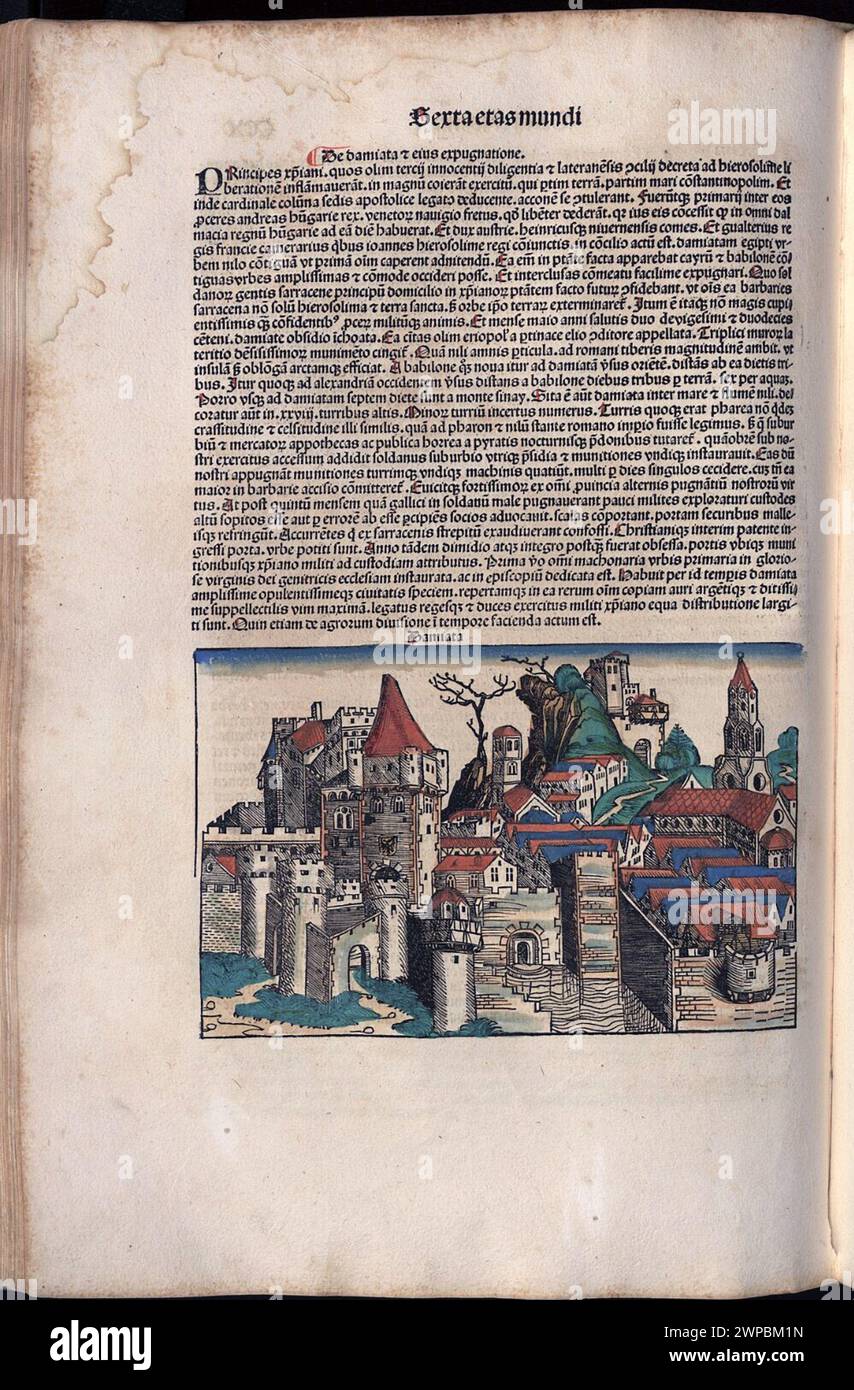 Sexta etas mundi
De damiata ⁊ eius expugnatione.
PRincipes xp̃iani. quos olim tercij innocentij diligentia ⁊ lateranẽsis ꝯcilij decreta ad hierosolime li
berationẽ inflãmauerãt. in magnũ coierãt exercitũ. qui ptim terrã. partim mari cõstantinopolim. Et
inde cardinale colũna sedis apostolice legato deducente. acconẽ se ꝯtulerant. Fuerũtqꝫ primarij inter eos
ꝓceres andreas hũgarie rex. venetoꝝ nauigio fretus. qð libẽter dederãt. qꝛ ius eis cõcessit qð in omni dal
macia regnũ hũgarie ad eã diẽ habuerat. Et dux austrie. heinricusqꝫ niuernensis comes. Et gualterius re
gis francie camerarius qͥbus ioannes hierosolime regi cõiunctis. in cõcilio actũ est. damiatam egipti vr
bem nilo cõtiguã vt primã oĩm caperent adnitendũ. Ea em̃ in ptãte facta apparebat cayrũ ⁊ babilonẽ cõ
tiguas vrbes amplissimas ⁊ cõmode occideri posse. Et interclusas cõmeatu facilime expugnari. Quo sol
danoꝝ gentis sarracene principũ domicilio in xp̃ianoꝝ ptãtem facto futuꝝ ꝯfidebant. vt oĩs ea barbaries
sarracena nõ solũ hierosolima ⁊ terra sancta. sꝫ orbe ip̃o terraꝝ exterminareť. Itum ẽ itaqꝫ nõ magis cupi
entissimis qꝫ cõfidentibꝰ ꝓceꝝ militũqꝫ animis. Et mense maio anni salutis duo deuigesimi ⁊ duodecies
cẽteni. damiate obsidio ĩchoata. Ea cĩtas olim eriopoľ a ꝑtinace elio ꝯditore appellata. Triplici muroꝝ la
teritio dẽsissimoꝝ munimẽto cingiť. Quã nili amnis ꝑticula. ad romani tiberis magnitudinẽ ambit. vt
insulã sꝫ oblõgã arctamqꝫ efficiat. A babilone qꝫ noua itur ad damiatã ỽsus oriẽtẽ. distãs ab ea dietis tri
bus. Itur quoqꝫ ad alexandriã occidentem ỽsus distans a babilone diebus tribus ꝑ terrã. sex per aquaꝫ.
Porro vsqꝫ ad damiatam septem diete sunt a monte sinay. Sita ẽ aũt damiata inter mare ⁊ flumẽ nili. de
coratur aũt in .xxviij. turribus altis. Minoꝝ turriũ incertus numerus. Turris quoqꝫ erat pharea nõ qͥdeꝫ
crassitudine ⁊ celsitudine illi similis. quã ad pharon ⁊ nilũ stante romano imp̃io fuisse legimus. sꝫ q̃ subur
biũ ⁊ mercatoꝝ appothecas ac publica horrea a pyratis nocturnisqꝫ p̃donibus tutareť. quãobrẽ sub no
stri exercitus accessum addidit soldanus suburbio vtriqꝫ p̃sidia ⁊ munitiones vndiqꝫ instaurauit. Eas dũ
nostri appugnãt munitiones turrimqꝫ vndiqꝫ machinis quatiũt. multi ꝑ dies singulos cecidere. cuꝫ tñ ea
maior in barbarie accisio cõmittereť. Euicitqꝫ fortissimoꝝ ex omĩ ꝓuincia alternis pugnãtiũ nostroꝝ vir
tus. At post quintũ mensem quã gallici in soldanũ male pugnauerant pauci milites exploraturi custodes
altũ sopitos esse aut ꝑ errorẽ ab esse ꝑcipiẽs socios aduocauit. scalas cõportant. portam securibus malle-
isqꝫ refringũt. Accurrẽtes q̃ ex sarracenis strepitũ exaudiuerant confossi. Christianiqꝫ interim patente in-
gressi porta. vrbe potiti sunt. Anno tãdem dimidio atqꝫ integro postqꝫ fuerat obsessa. portis vbiqꝫ muni
tionibusqꝫ xp̃iano militi ad custodiam attributus. Prima ỽo omĩ machonaria vrbis primaria in glorio-
se virginis dei genitricis ecclesiam instaurata. ac in episcopiũ dedicata est. Habuit per id tempis damiata
amplissime opulentissimeqꝫ ciuitatis speciem. repertamqꝫ in ea rerum oĩm copiam auri argẽtiqꝫ ⁊ ditissi-
me suppellectilis vim maximã. legatus regesqꝫ ⁊ duces exercitus militi xp̃iano equa distributione largi-
ti sunt. Quin etiam de agrorum diuisione ĩ tempore facienda actum est.
Damiata
alamy
Image ID: 2WPBM1N
www.alamy.com